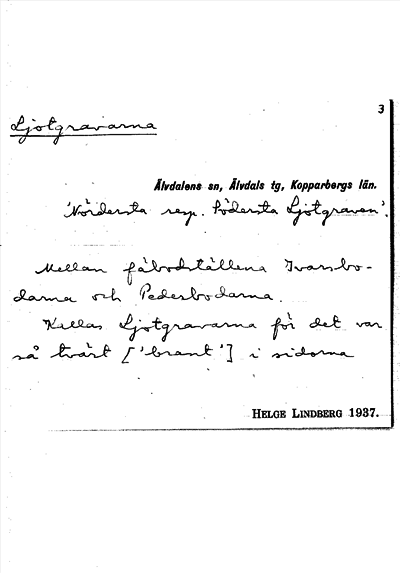 3
Ljotgravarna
Älvdalens sn, Älvdals tg, Kopparbergs län.
'Nördersta resp. Södersta Ljotgraven'.
Mellan fäbodställena Ivarsbo-
darna och Pedersbodarna.
Kallas Ljotgravarna för det var
så tvärt ['brant'] i sidorna
HELGE LINDBERG 1937.